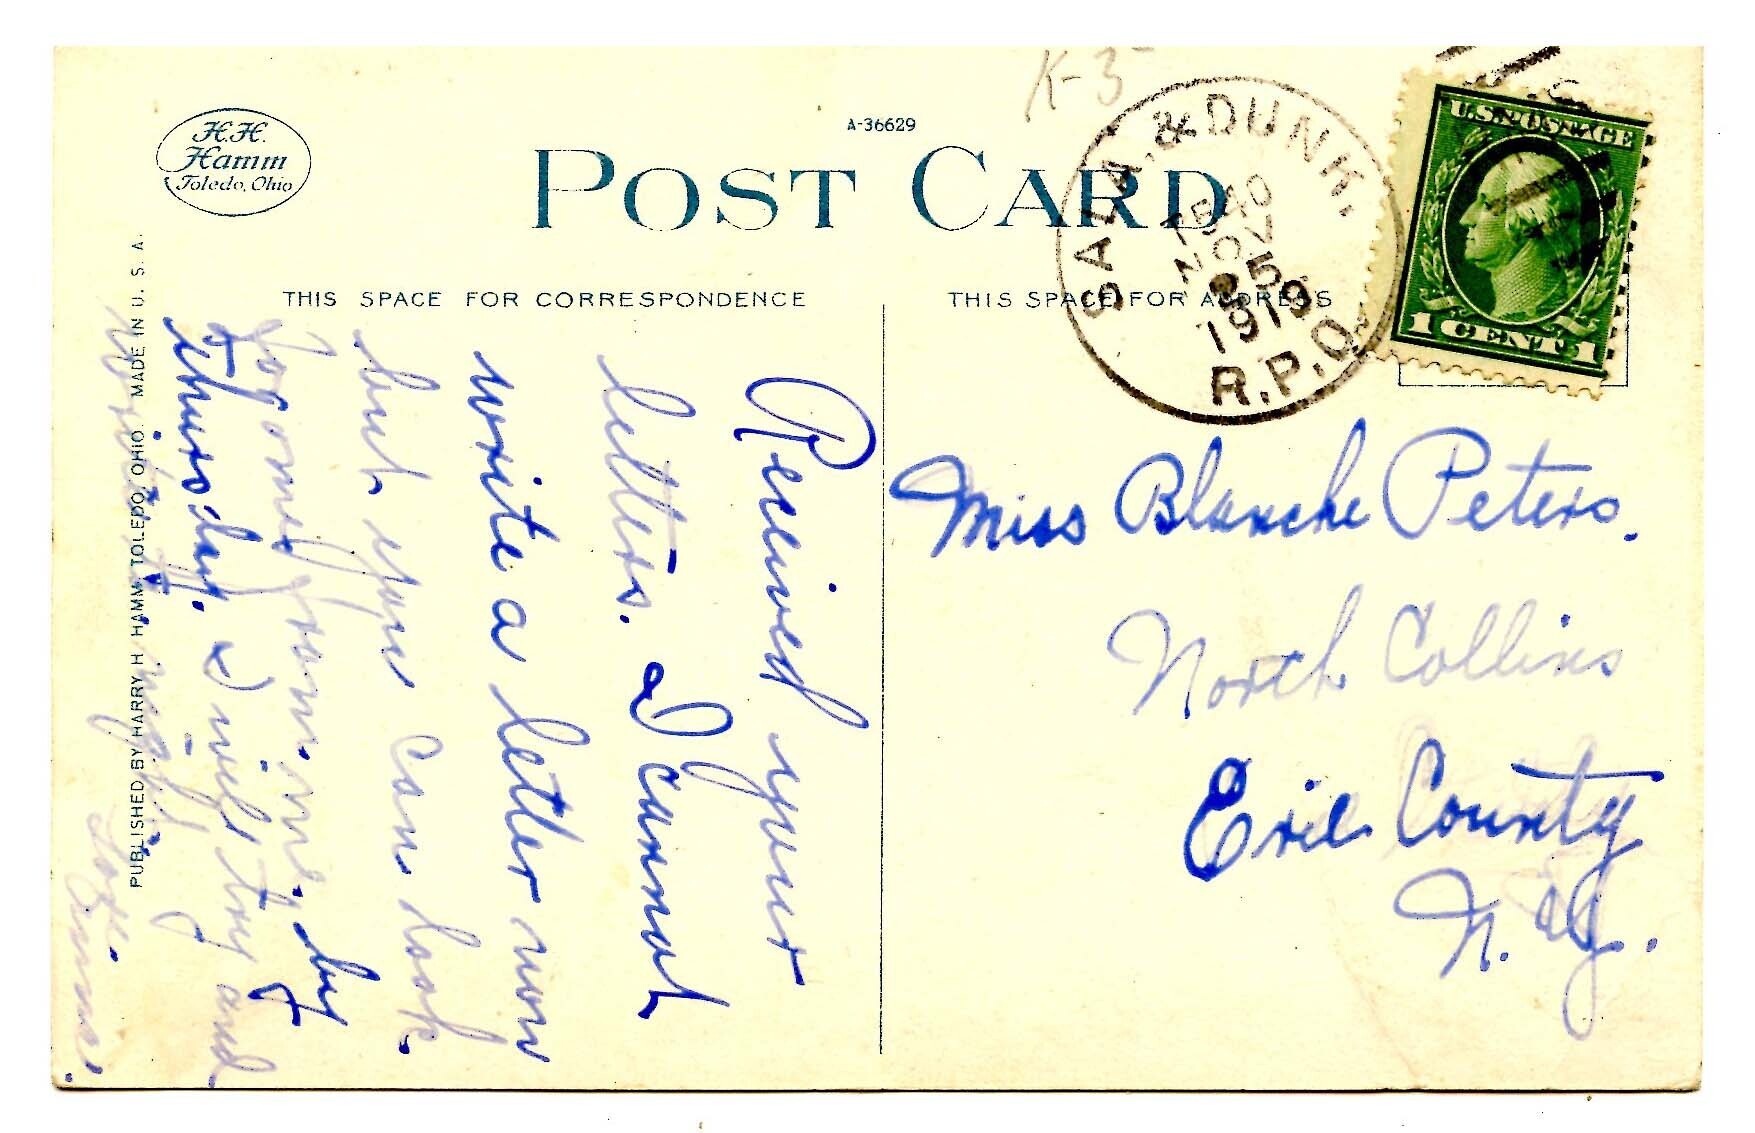 K-3
H.H.
Hamm
Toledo, Ohio
A-36629
POST CARD
SALA. & DUNK.
NOV
5
1919
R.P.O.
U.S. POSTAGE
1 CENT 1
THIS SPACE FOR CORRESPONDENCE
THIS SPACE FOR ADDRESS
PUBLISHED BY HARRY H. HAMM, TOLEDO, OHIO. MADE IN U. S. A.
Received your
letters. I cannot
write a letter now
but you can look
for one from me, by
Thursday. I will try and
write to night.
Miss Blanche Peters.
North Collins
Erie County
N. Y.